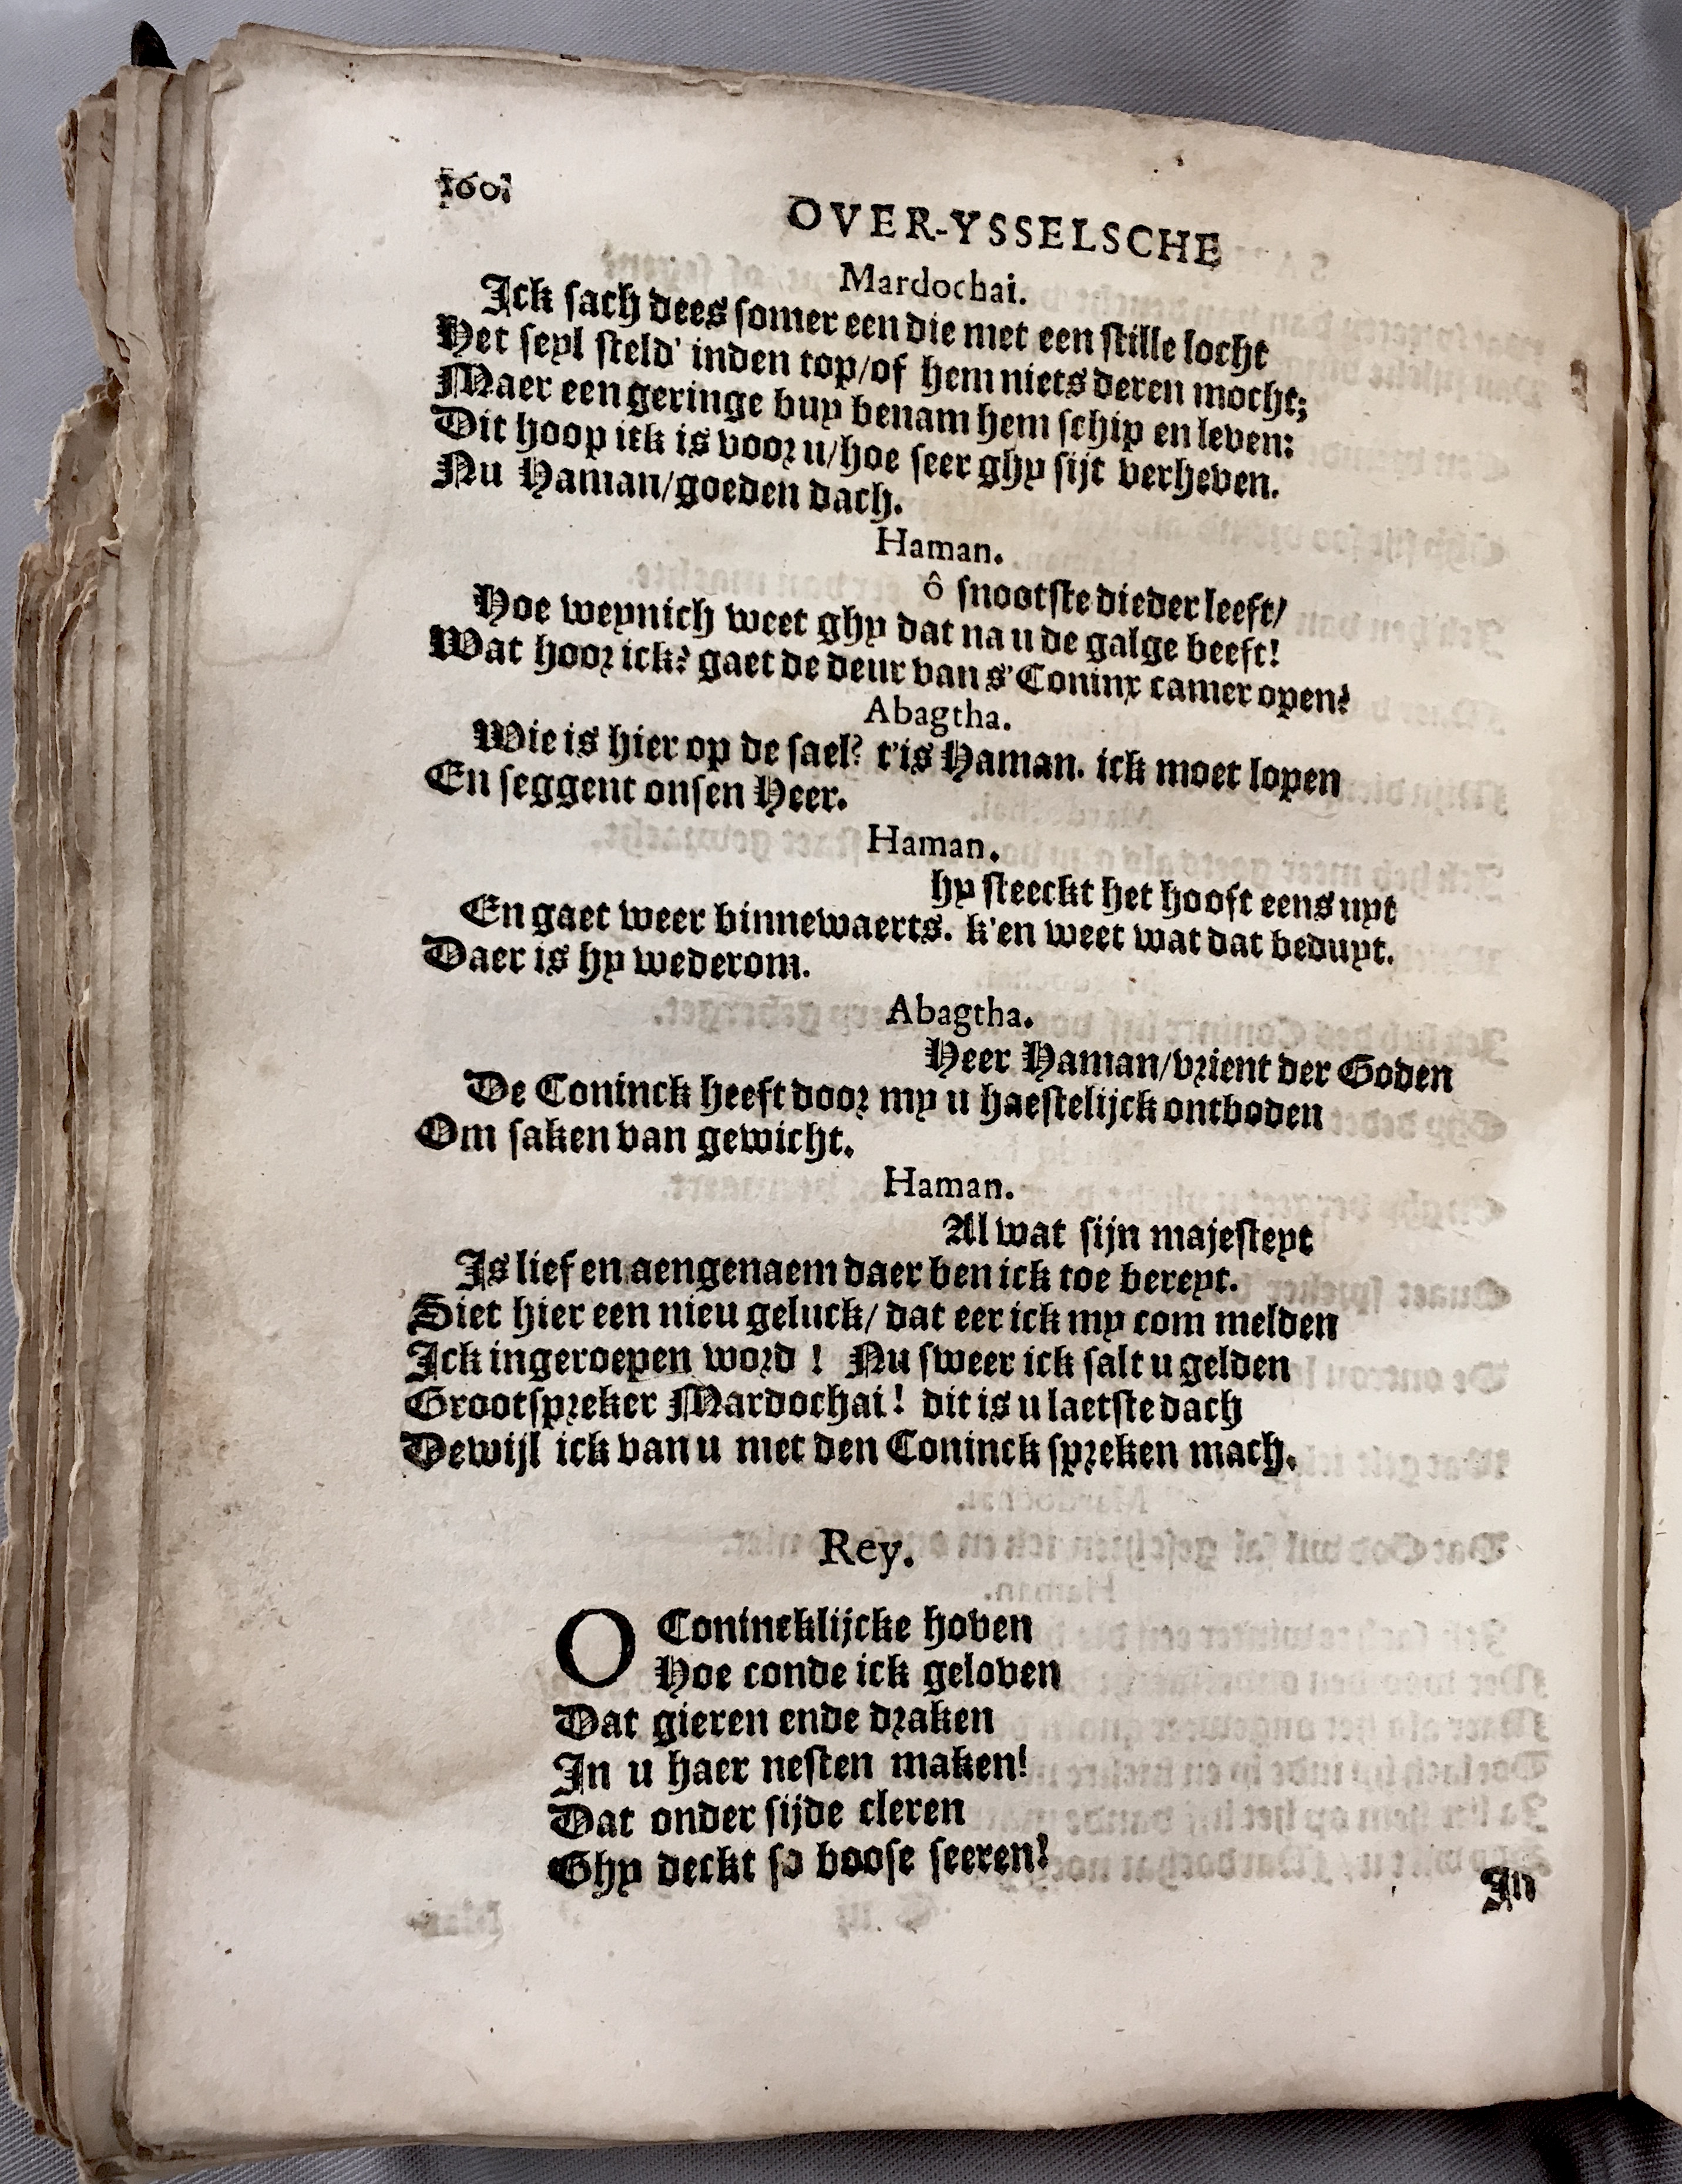 160
OVER-YSSELSCHE
Mardochai.
Ick sach dees somer een die met een stille locht
Het seyl steld' inden top/of hem niets deren mocht;
Maer een geringe buy benam hem schip en leven:
Dit hoop ick is voor u/hoe seer ghy sijt verheven.
Nu Haman/goeden dach.
Haman.
ô snootste dieder leeft/
Hoe weynich weet ghy dat na u de galge beeft!
Wat hoor ick? gaet de deur van s'Coninx camer open?
Abagtha.
Wie is hier op de sael? t'is Haman. ick moet lopen
En seggent onsen Heer.
Haman.
hy steeckt het hooft eens uyt
En gaet weer binnewaerts. k'en weet wat dat beduyt.
Daer is hy wederom.
Abagtha.
Heer Haman/vrient der Goden
De Coninck heeft door my u haestelijck ontboden
Om saken van gewicht.
Haman.
Al wat sijn majesteyt
Is lief en aengenaem daer ben ick toe bereyt.
Siet hier een nieu geluck/ dat eer ick my com melden
Ick ingeroepen word ! Nu sweer ick salt u gelden
Grootspreker Mardochai! dit is u laetste dach
Dewijl ick van u met den Coninck spreken mach.
Rey.
O Coninckclijcke hoven
Hoe conde ick geloven
Dat gieren ende draken
In u haer nesten maken!
Dat onder sijde cleren
Ghy deckt so boose seeren!
In